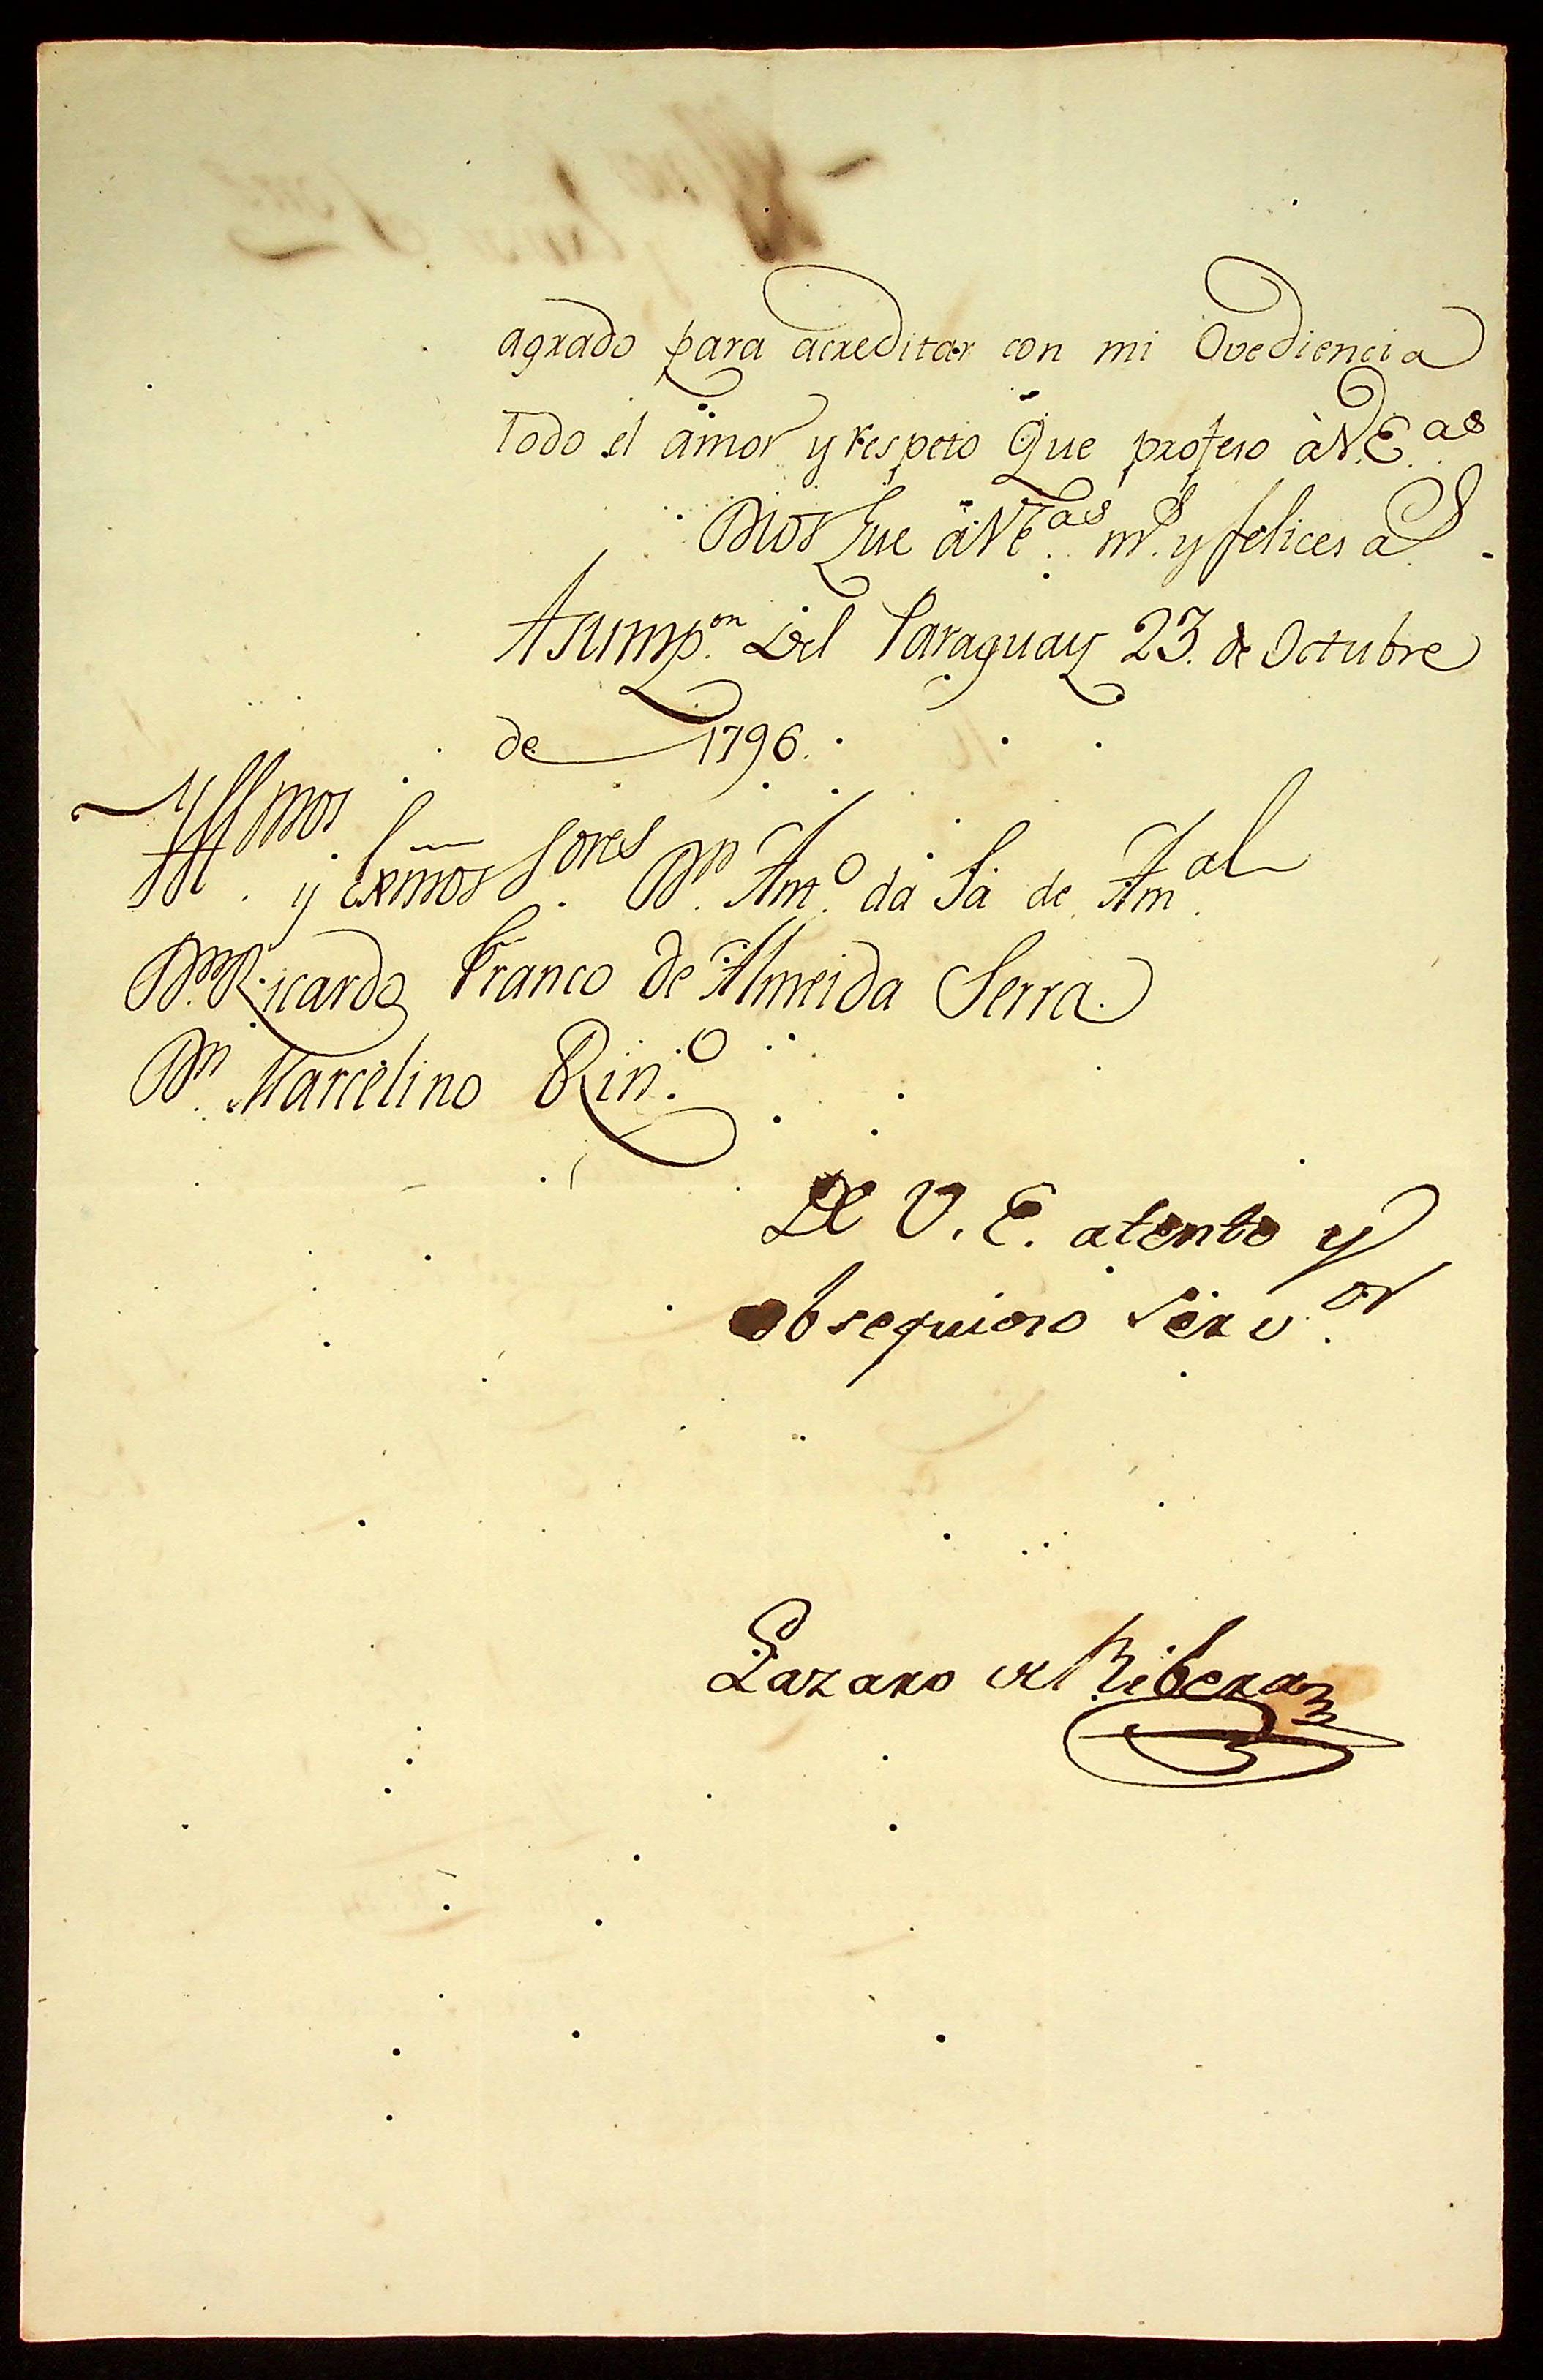 agrado para acreditar con mi Ovediencia
todo el amor y respeto Que profeso à V.E.as
Dios gue à V.E.as m.s y felices a.s
Asump.on Del Paraguay 23. de Octubre
de 1796.
Yll.mos y Exmos S.ores D.n Ant.o da Sa de Am.al
D.n Ricardo Franco de Almeida Serra.
D.n Marcelino Rin.o
De V. E. atento y
obsequioso Serv.or
Lazaro de Ribera